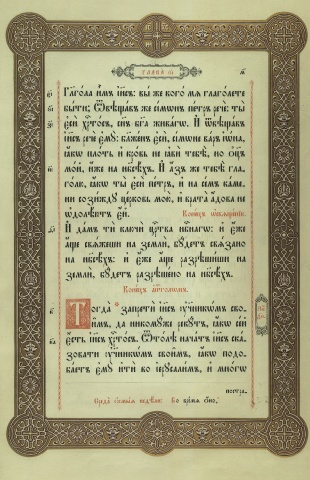 ГЛАВА
Глаго́ла и҆̀мъ і҆и҃съ: вы́ же кого̀ мѧ̀ глаго́лете
бы́ти; Ѿвѣща́въ же сі́мѡнъ пе́тръ речѐ: ты̀
є҆сѝ хр҃то́съ, сн҃ъ бг҃а жива́гѡ. И҆ ѿвѣща́въ
і҆и҃съ речѐ є҆мꙋ̀: бл҃же́нъ є҆сѝ, сі́мѡне ва́ръ і҆ѡ́на,
ꙗ҆́кѡ пло́ть и҆ кро́вь не ꙗ҆вѝ тебѣ̀, но ѻ҆ц҃ъ
мо́й, и҆́же на нб҃сѣ́хъ. И҆ а҆́зъ же тебѣ̀ гла-
го́лю, ꙗ҆́кѡ ты̀ є҆сѝ пе́тръ, и҆ на се́мъ ка́ме-
ни сози́ждꙋ це́рковь мою̀, и҆ врата̀ а҆́дѡва не
ѡ҆долѣ́ютъ є҆́й.
И҆ да́мъ тѝ ключѝ црⷭ҇тва нбⷭ҇нагѡ: и҆ є҆́же
а҆́ще свѧ́жеши на землѝ, бꙋ́детъ свѧ́зано
на нб҃сѣ́хъ: и҆ є҆́же а҆́ще разрѣши́ши на
землѝ, бꙋ́детъ разрѣше́но на нб҃сѣ́хъ.
Коне́цъ а҆пⷭ҇лѡмъ.
Тогда̀ запретѝ і҆и҃съ ᲂу҆чн҃кѡ́мъ свои҄-
мъ, да никомꙋ́же рекꙋ́тъ, ꙗ҆́кѡ се́й
є҆́сть і҆и҃съ хр҃то́съ. Ѿто́лѣ нача́тъ і҆и҃съ ска-
зовати ᲂу҆чн҃кѡ́мъ свои҄мъ, ꙗ҆́кѡ подо-
ба́етъ є҆мꙋ̀ и҆тѝ во і҆ерⷭ҇ли́мъ, и҆ мно́гѡ
постра-
во вре́мѧ ѻ҆́но,